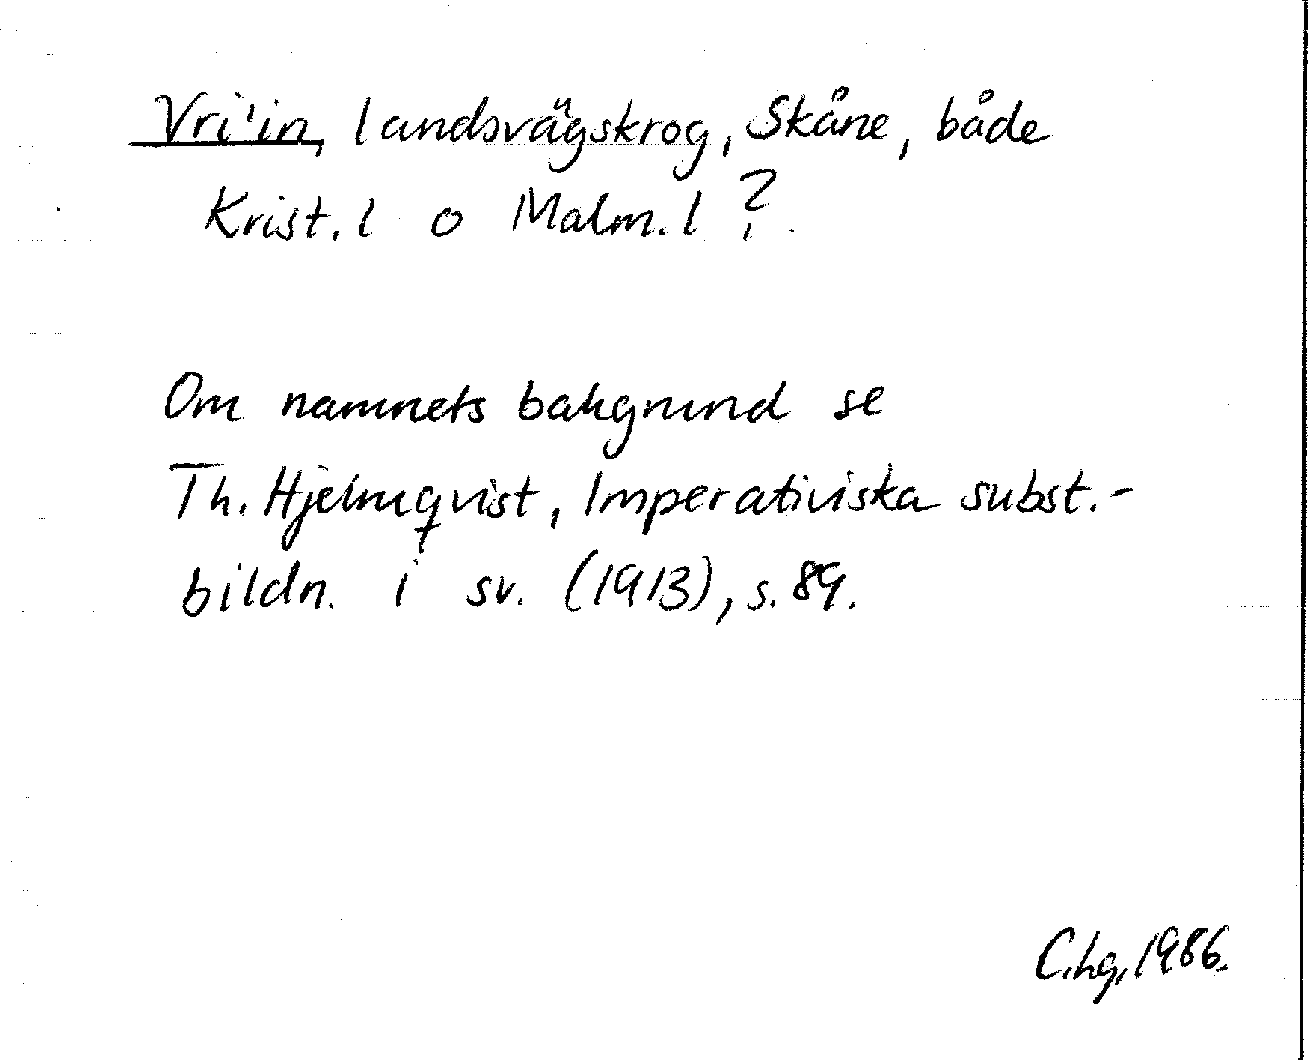 Vri'in, landsvägskrog, Skåne, både
Krist. l o Malm. l ?.
Om namnets bakgrund se
Th. Hjelmqvist, Imperativiska subst.-
bildn. i sv. (1913), s. 89.
C.hg, 1986.